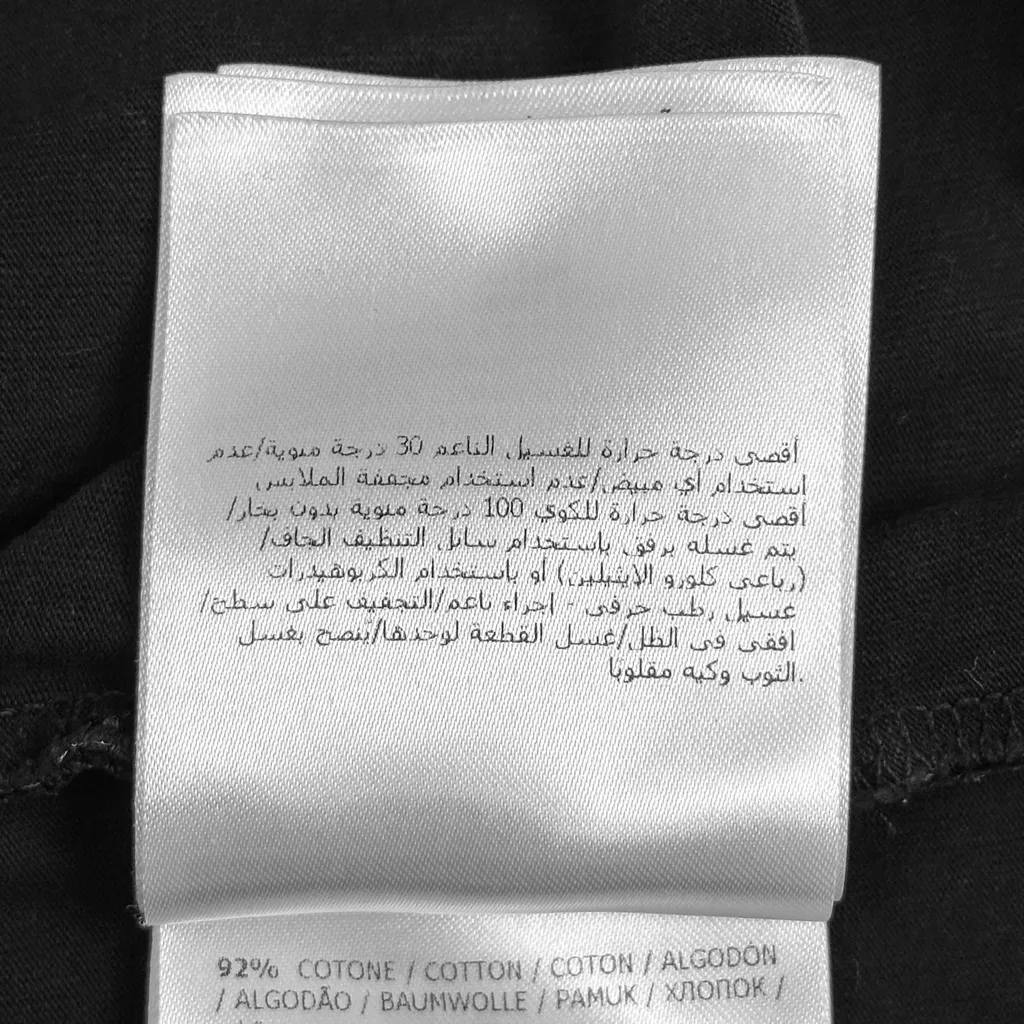 أقصى درجة حرارة للغسيل الناعم 30 درجة مئوية/عدم
استخدام أي مبيض/عدم استخدام مجففة الملابس
أقصى درجة حرارة للكوي 100 درجة مئوية بدون بخار/
يتم غسله برفق باستخدام سائل التنظيف الجاف/
(رباعي كلورو الايثيلين) أو باستخدام الكربوهيدرات
غسيل رطب حرفي - اجراء ناعم/التجفيف على سطح/
افقي في الظل/غسل القطعة لوحدها/يُنصح بغسل
الثوب وكيه مقلوبا.
92% COTONE / COTTON / COTON / ALGODÓN
/ ALGODÃO / BAUMWOLLE / PAMUK / ХЛОПОК /